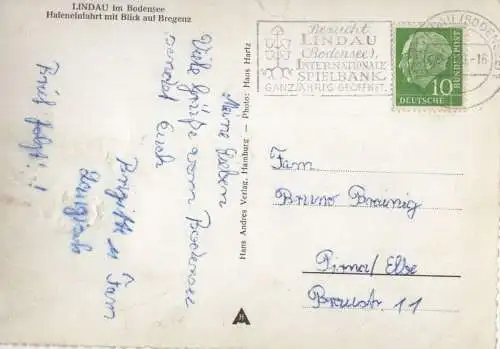 LINDAU im Bodensee
Hafeneinfahrt mit Blick auf Bregenz
Besucht
LINDAU
(Bodensee),
INTERNATIONALE
SPIELBANK
GANZJÄHRIG GEÖFFNET.
10
DEUTSCHE
BUNDESPOST
Meine Lieben
Viele Grüße vom Bodensee
sendet Euch
Brigitte u Fam
Brief folgt!!
Hans Andres Verlag, Hamburg — Photo: Hans Hartz
Fam
Bruno Bräunig
Pirna/Elbe
Braustr 11